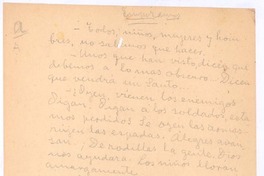 — Todos, niños, mujeres y hom
bres, no sabemos que hacer.
— Unos que han visto, dicen que
debemos a lo mas obscuro. Dicen
que vendrá un Santo....
— ¡Oyen, vienen los enemigos
Digan, digan a los soldados, esta
mos perdidos! Se oyen las armas
las espadas. Alegres avan
zan. ¡De rodillas la gente, Dios
nos ayudara. Los niños lloran
amargamente.